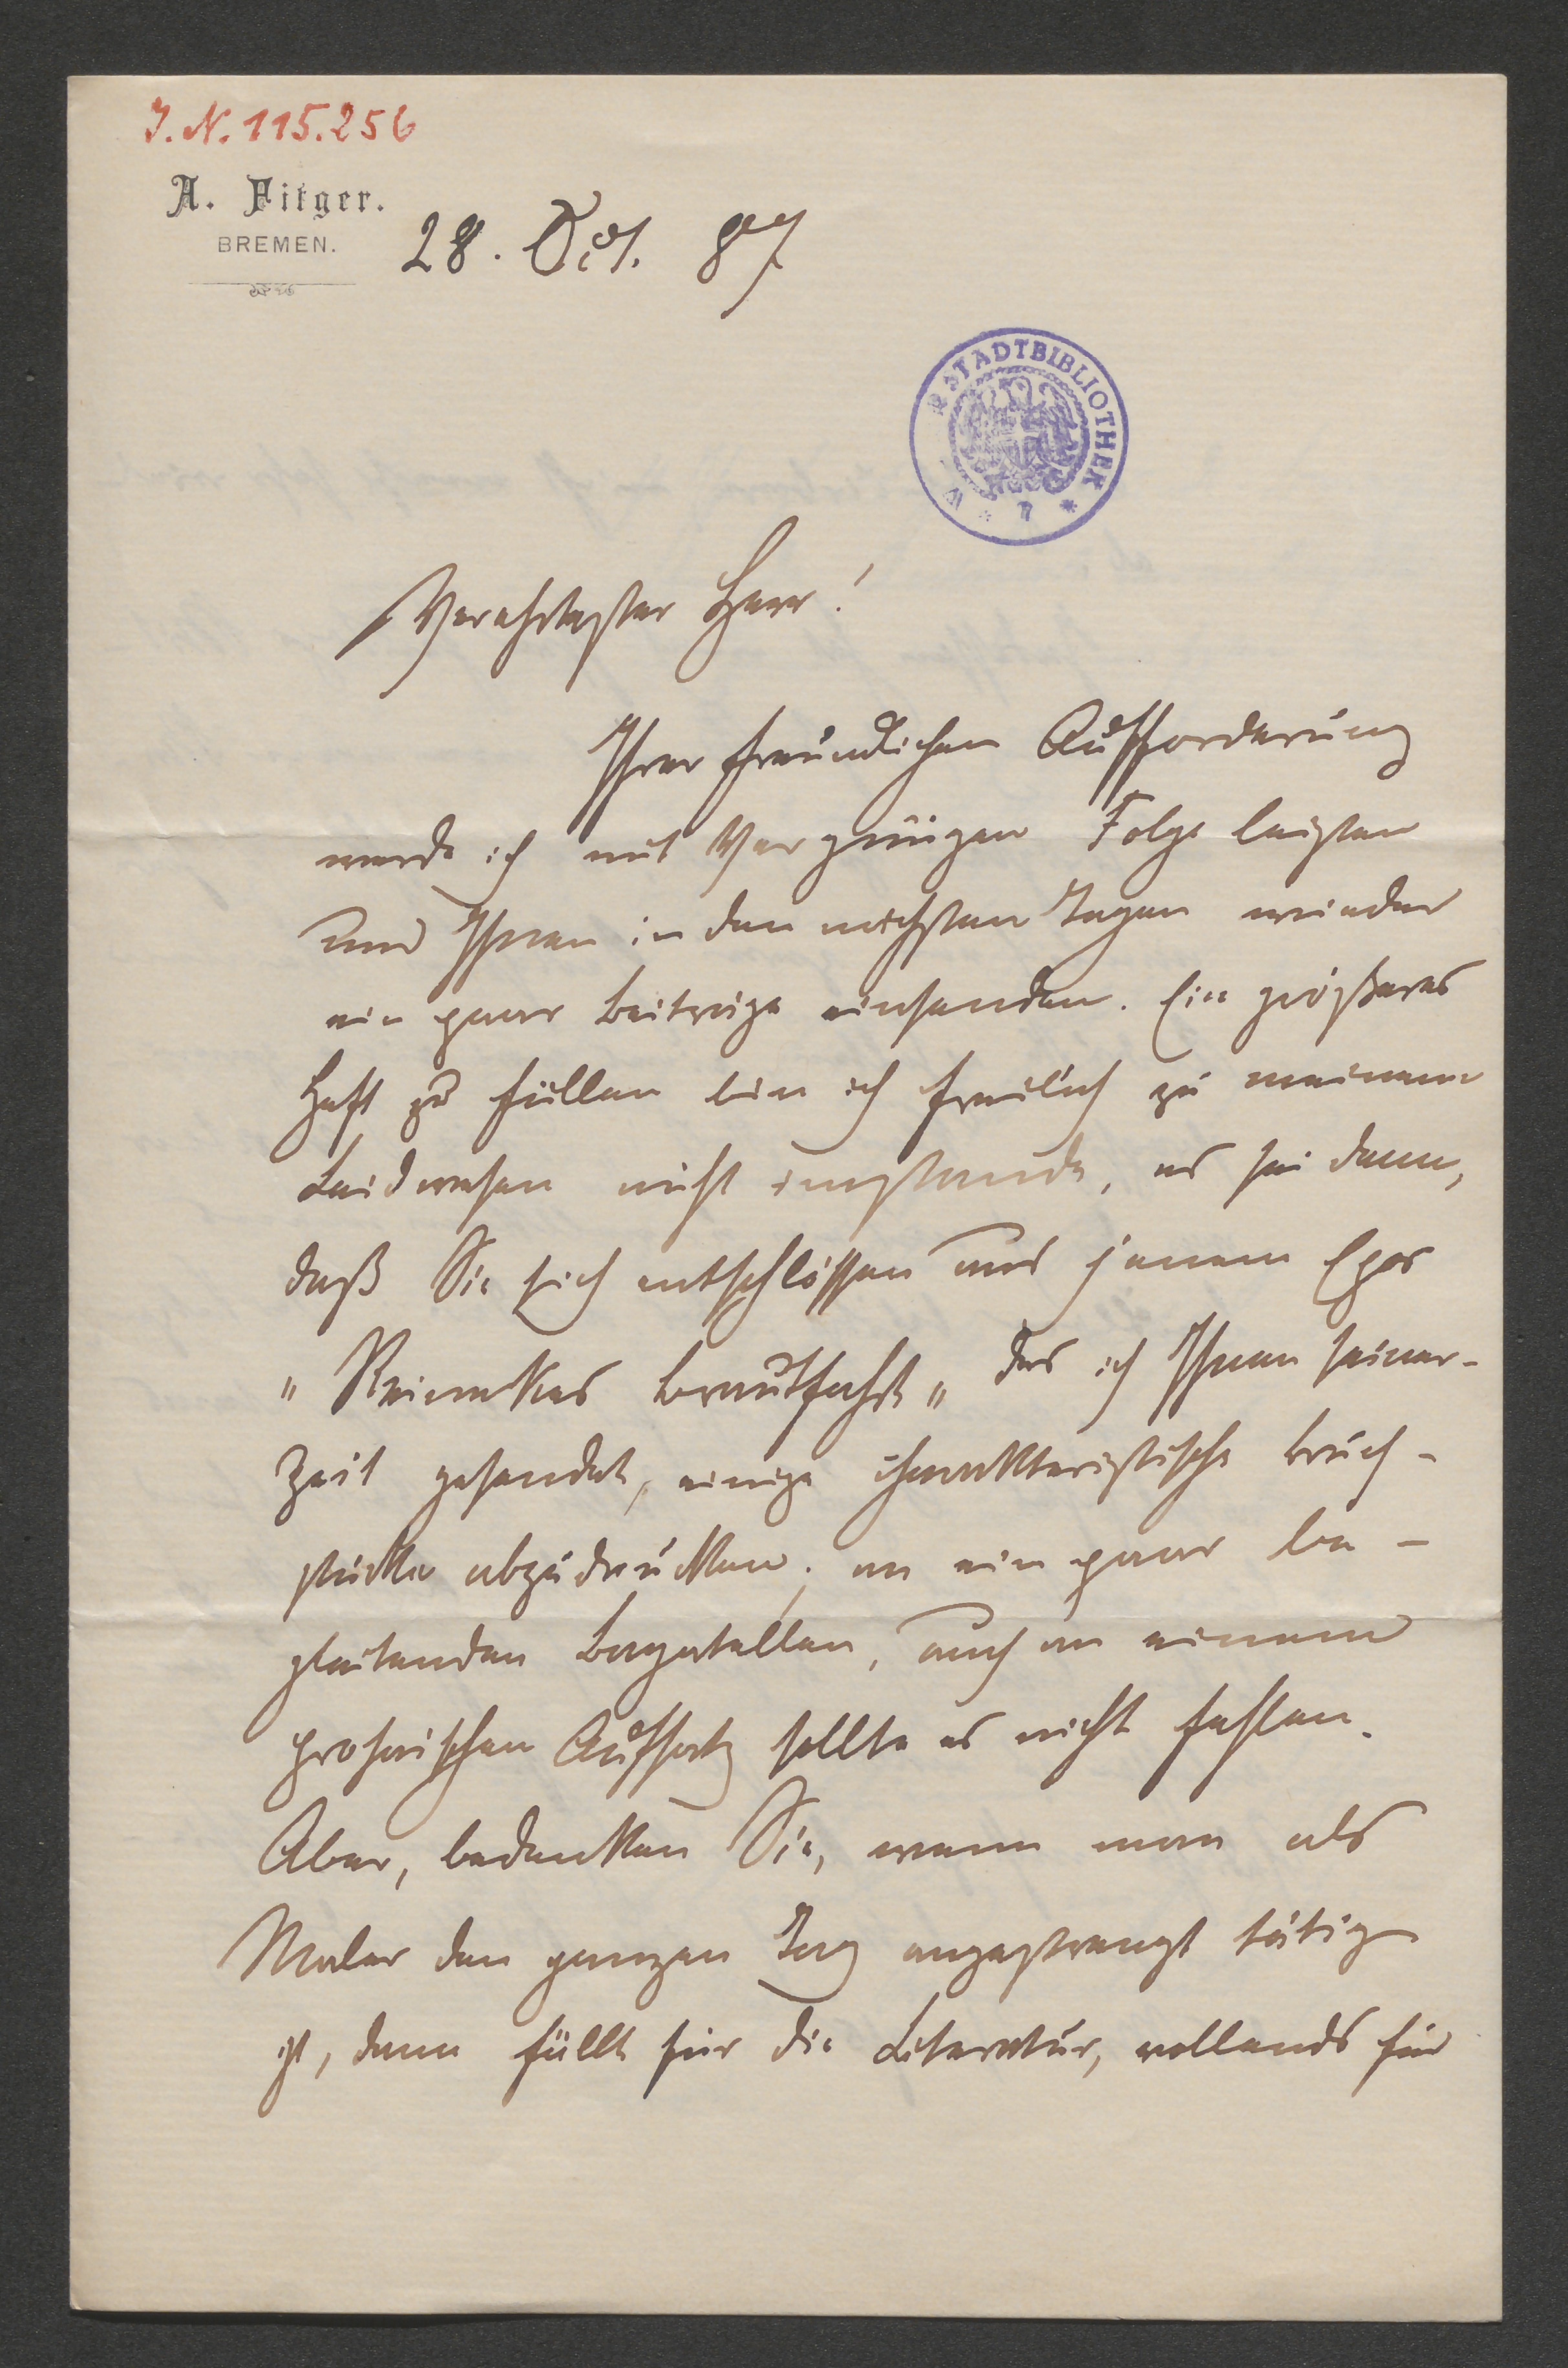 J. N. 115.256
A. Fitger.
BREMEN.
28. Oct. 87
STADTBIBLIOTHEK
Verehrtester Herr!
Ihrer freundlichen Aufforderung
werde ich mit Vergnügen Folge leisten
und Ihnen in den nächsten Tagen wieder
ein paar Beiträge einsenden. Ein größeres
Heft zu füllen bin ich freilich zu meinem
Leidwesen nicht imstande, es sei denn,
daß Sie sich entschlössen aus jenem Epos
„Reinekes Brautfahrt„ das ich Ihnen seiner-
zeit gesendet, einige charakteristische Bruch-
stücke abzudrucken; an ein paar be-
gleitenden Bagatellen, auch an einem
prosaischen Aufsatz sollte es nicht fehlen.
Aber, bedenken Sie, wenn man als
Maler den ganzen Tag angestrengt tätig
ist, dann fällt für die Literatur, vollends für